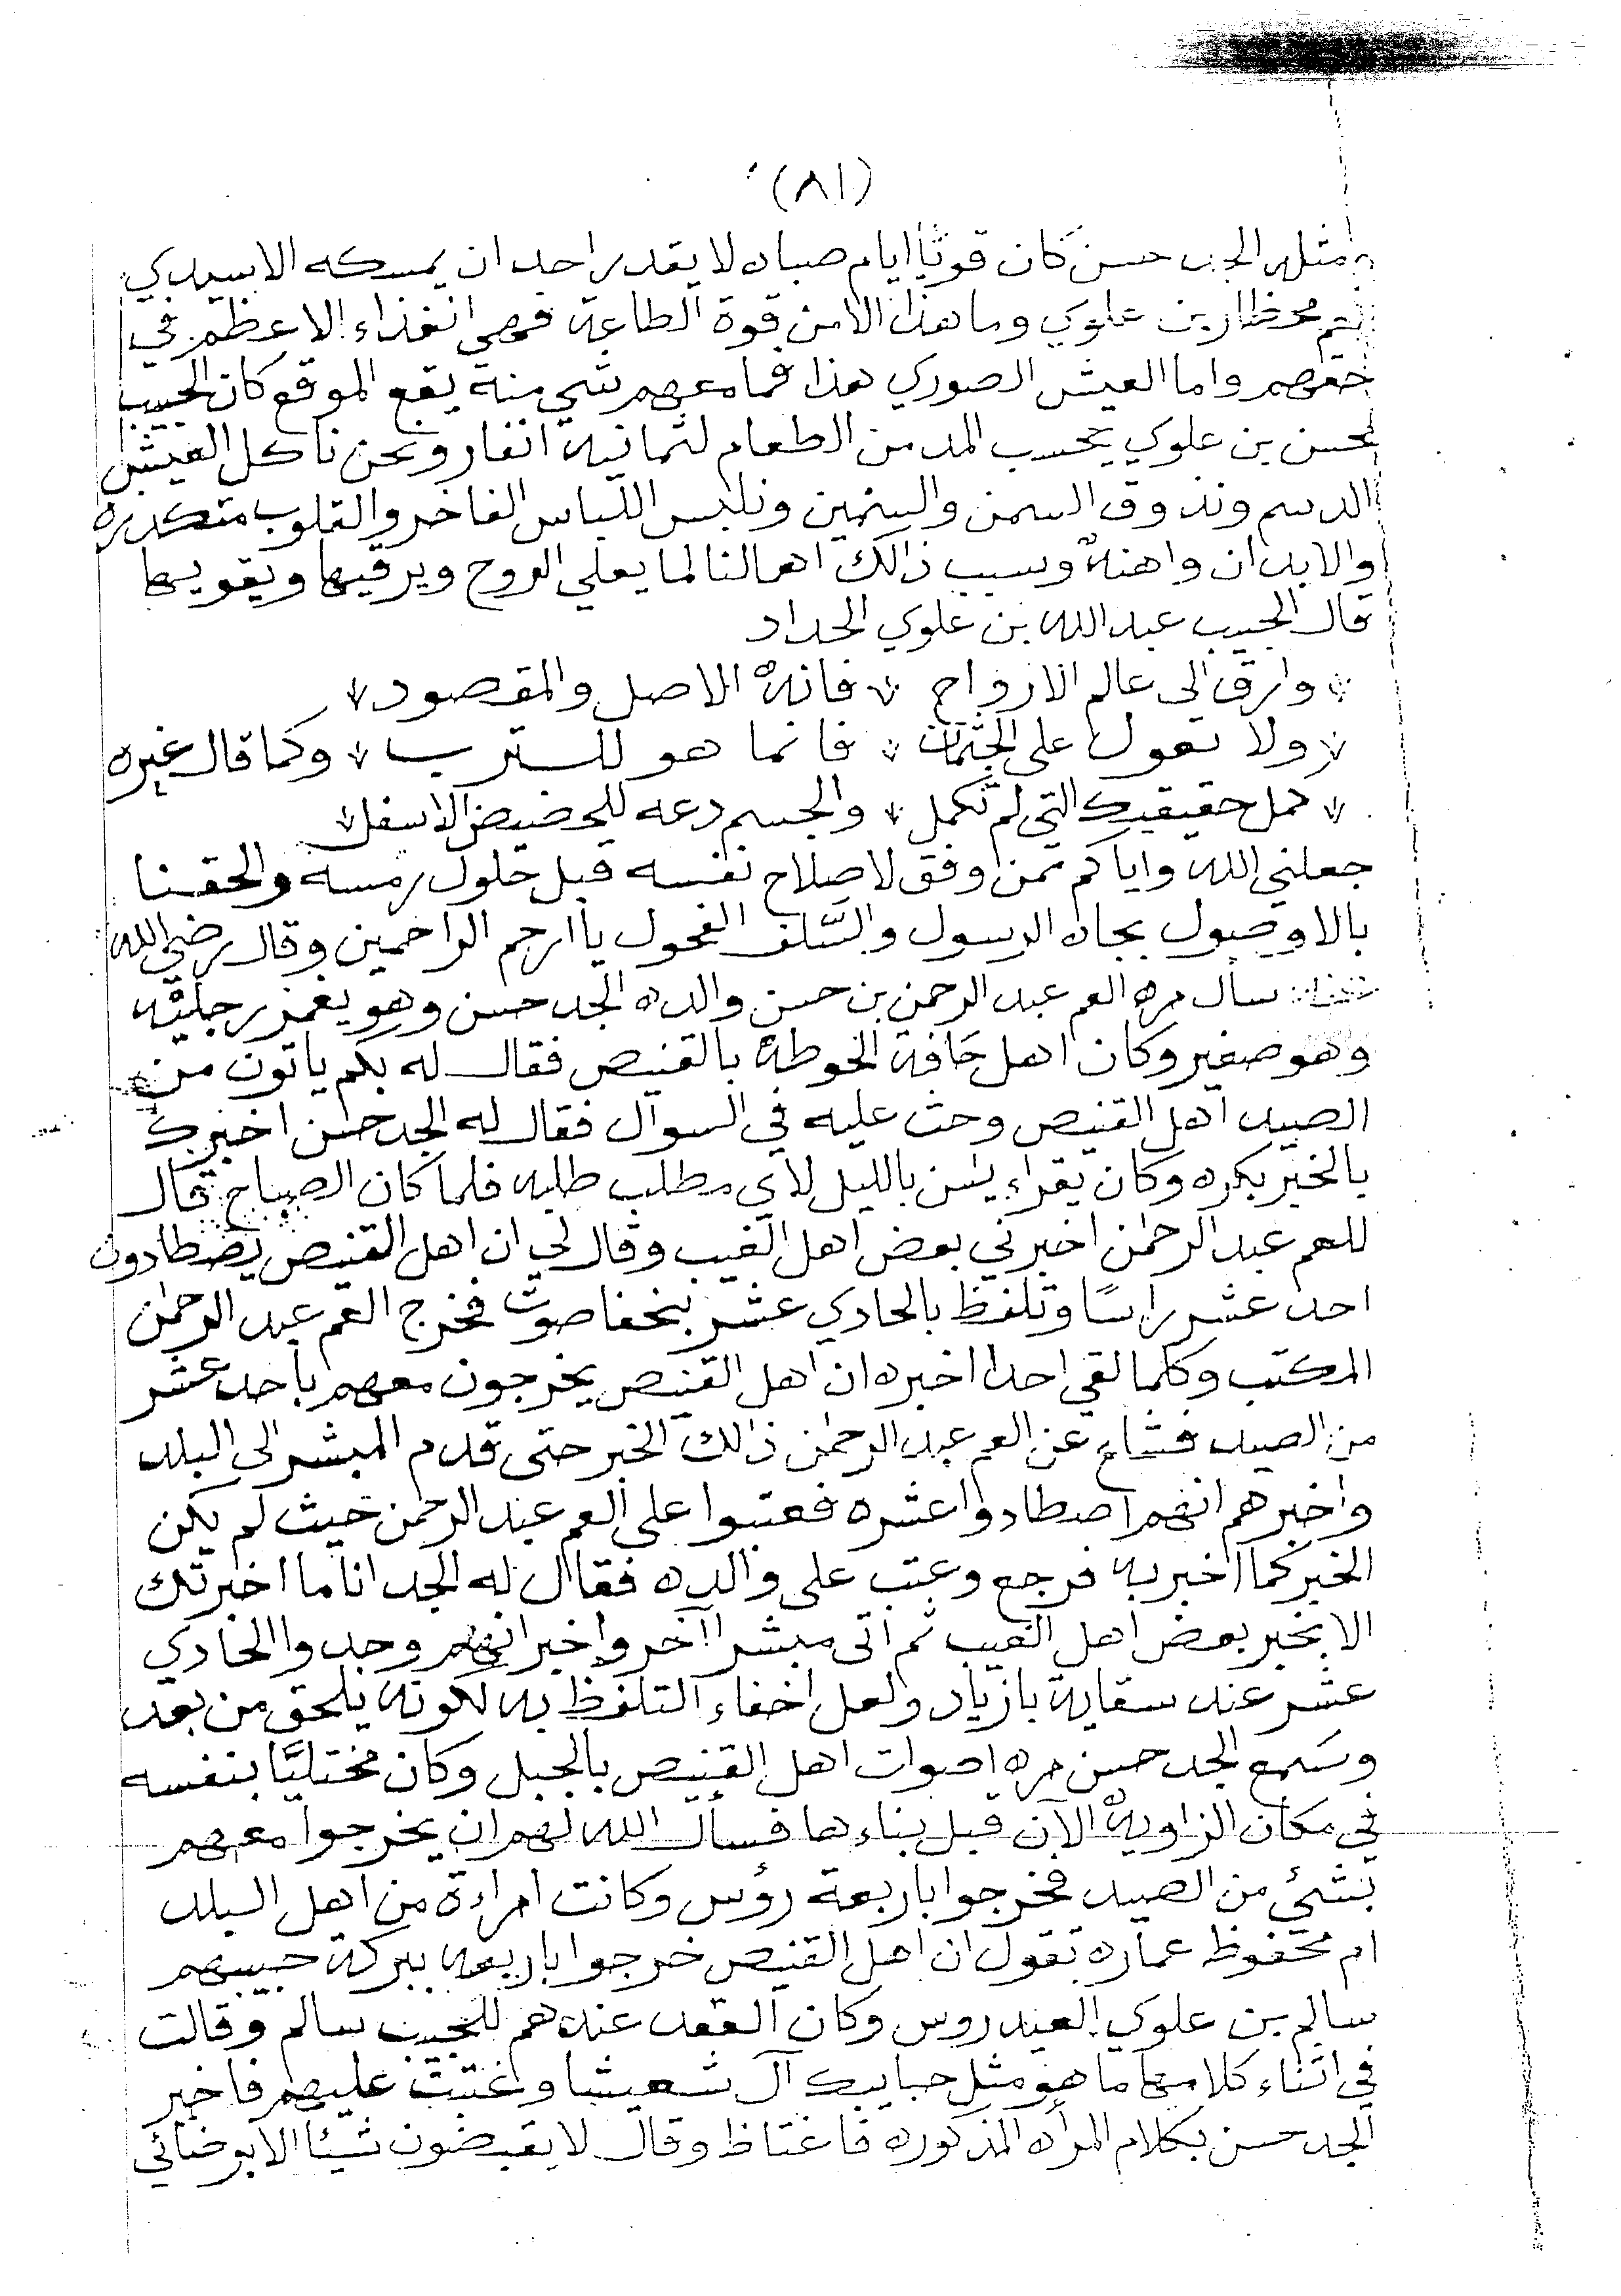 (٨١)
ومثله الجد حسن كان قويًا ايام صباه لا يقدر احد ان يمسكه الا سيدي
محضار بن علوي وما هذا الا من قوة الطاعة فهي الغذاء الاعظم في
حقهم واما العيش الصوري هذا فما معهم شي منه يقع الموقع كان الحبيب
محسن بن علوي يحسب المد من الطعام لثمانية انفار ونحن ناكل العيش
الدسم ونذوق السمن والسمين ونلبس اللباس الفاخر والقلوب متكدره
والابدان واهنة وسبب ذالك اهمالنا لما يعلي الروح ويرقيها ويقويها
قال الحبيب عبد الله بن علوي الحداد
وارق الى عالم الارواح فانه الاصل والمقصود
ولا تعول على الجثمان فانما هو للترب وكما قال غيره
كمل حقيقتك التي لم تكمل والجسم دعه للحضيض الاسفل
جعلني الله واياكم ممن وفق لاصلاح نفسه قبل حلول رمسه والحقنا
بالاوصول بجاه الرسول والسَّلف الفحول ياارحم الراحمين وقال رضي الله
عنه: سال مره العم عبد الرحمن بن حسن والده الجد حسن وهو يغمز رجليْه
وهو صغير وكان اهل حَافة الحوطة بالقنيص فقال له بكم ياتون من
الصيد اهل القنيص وحث عليه في السوآل فقال له الجد حسن اخبرك
بالخبر بكره وكان يقراء يس بالليل لاي مطلب طلبه فلما كان الصباح قال
للعم عبد الرحمن اخبرني بعض اهل الغيب وقال لي ان اهل القنيص يصطادون
احد عشر راسًا وتلفظ بالحادي عشر بخفا صوت فخرج العم عبد الرحمن
المكتب وكلما لقي احدا اخبره ان اهل القنيص يخرجون معهم باحد عشر
من الصيد فشاع عن العم عبد الرحمن ذالك الخبر حتى قدم المبشر الى البلد
واخبرهم انهم اصطادوا عشره فعتبوا على العم عبد الرحمن حيث لم يكن
الخبر كما اخبر به فرجع وعتب على والده فقال له الجد انا ما اخبرتك
الا بخبر بعض اهل الغيب ثم اتى مبشرا آخر واخبر انهم وجدوا الحادي
عشر عند سقاية بازياد ولعل اخفاء التلفظ به لكونه يلحق من بعد
وسَمع الجد حسن مره اصوات اهل القنيص بالجبل وكان مختليًا بنفسه
في مكان الزاوية الآن قبل بناءها فسأل الله لهم ان يخرجوا معهم
بشئ من الصيد فخرجوا باربعة رؤس وكانت امراءة من اهل البلد
ام محفوظ عماره تقول ان اهل القنيص خرجوا باربعه ببركة حبيبهم
سالم بن علوي العيدروس وكان العقد عندهم للحبيب سالم وقالت
في اثناء كلامها ما هو مثل حبايبك آل شعيشا وعتبت عليهم فاخبر
الجد حسن بكلام المرأه المذكوره فاغتاظ وقال لا يقبضون شيئا الا بوخنائي